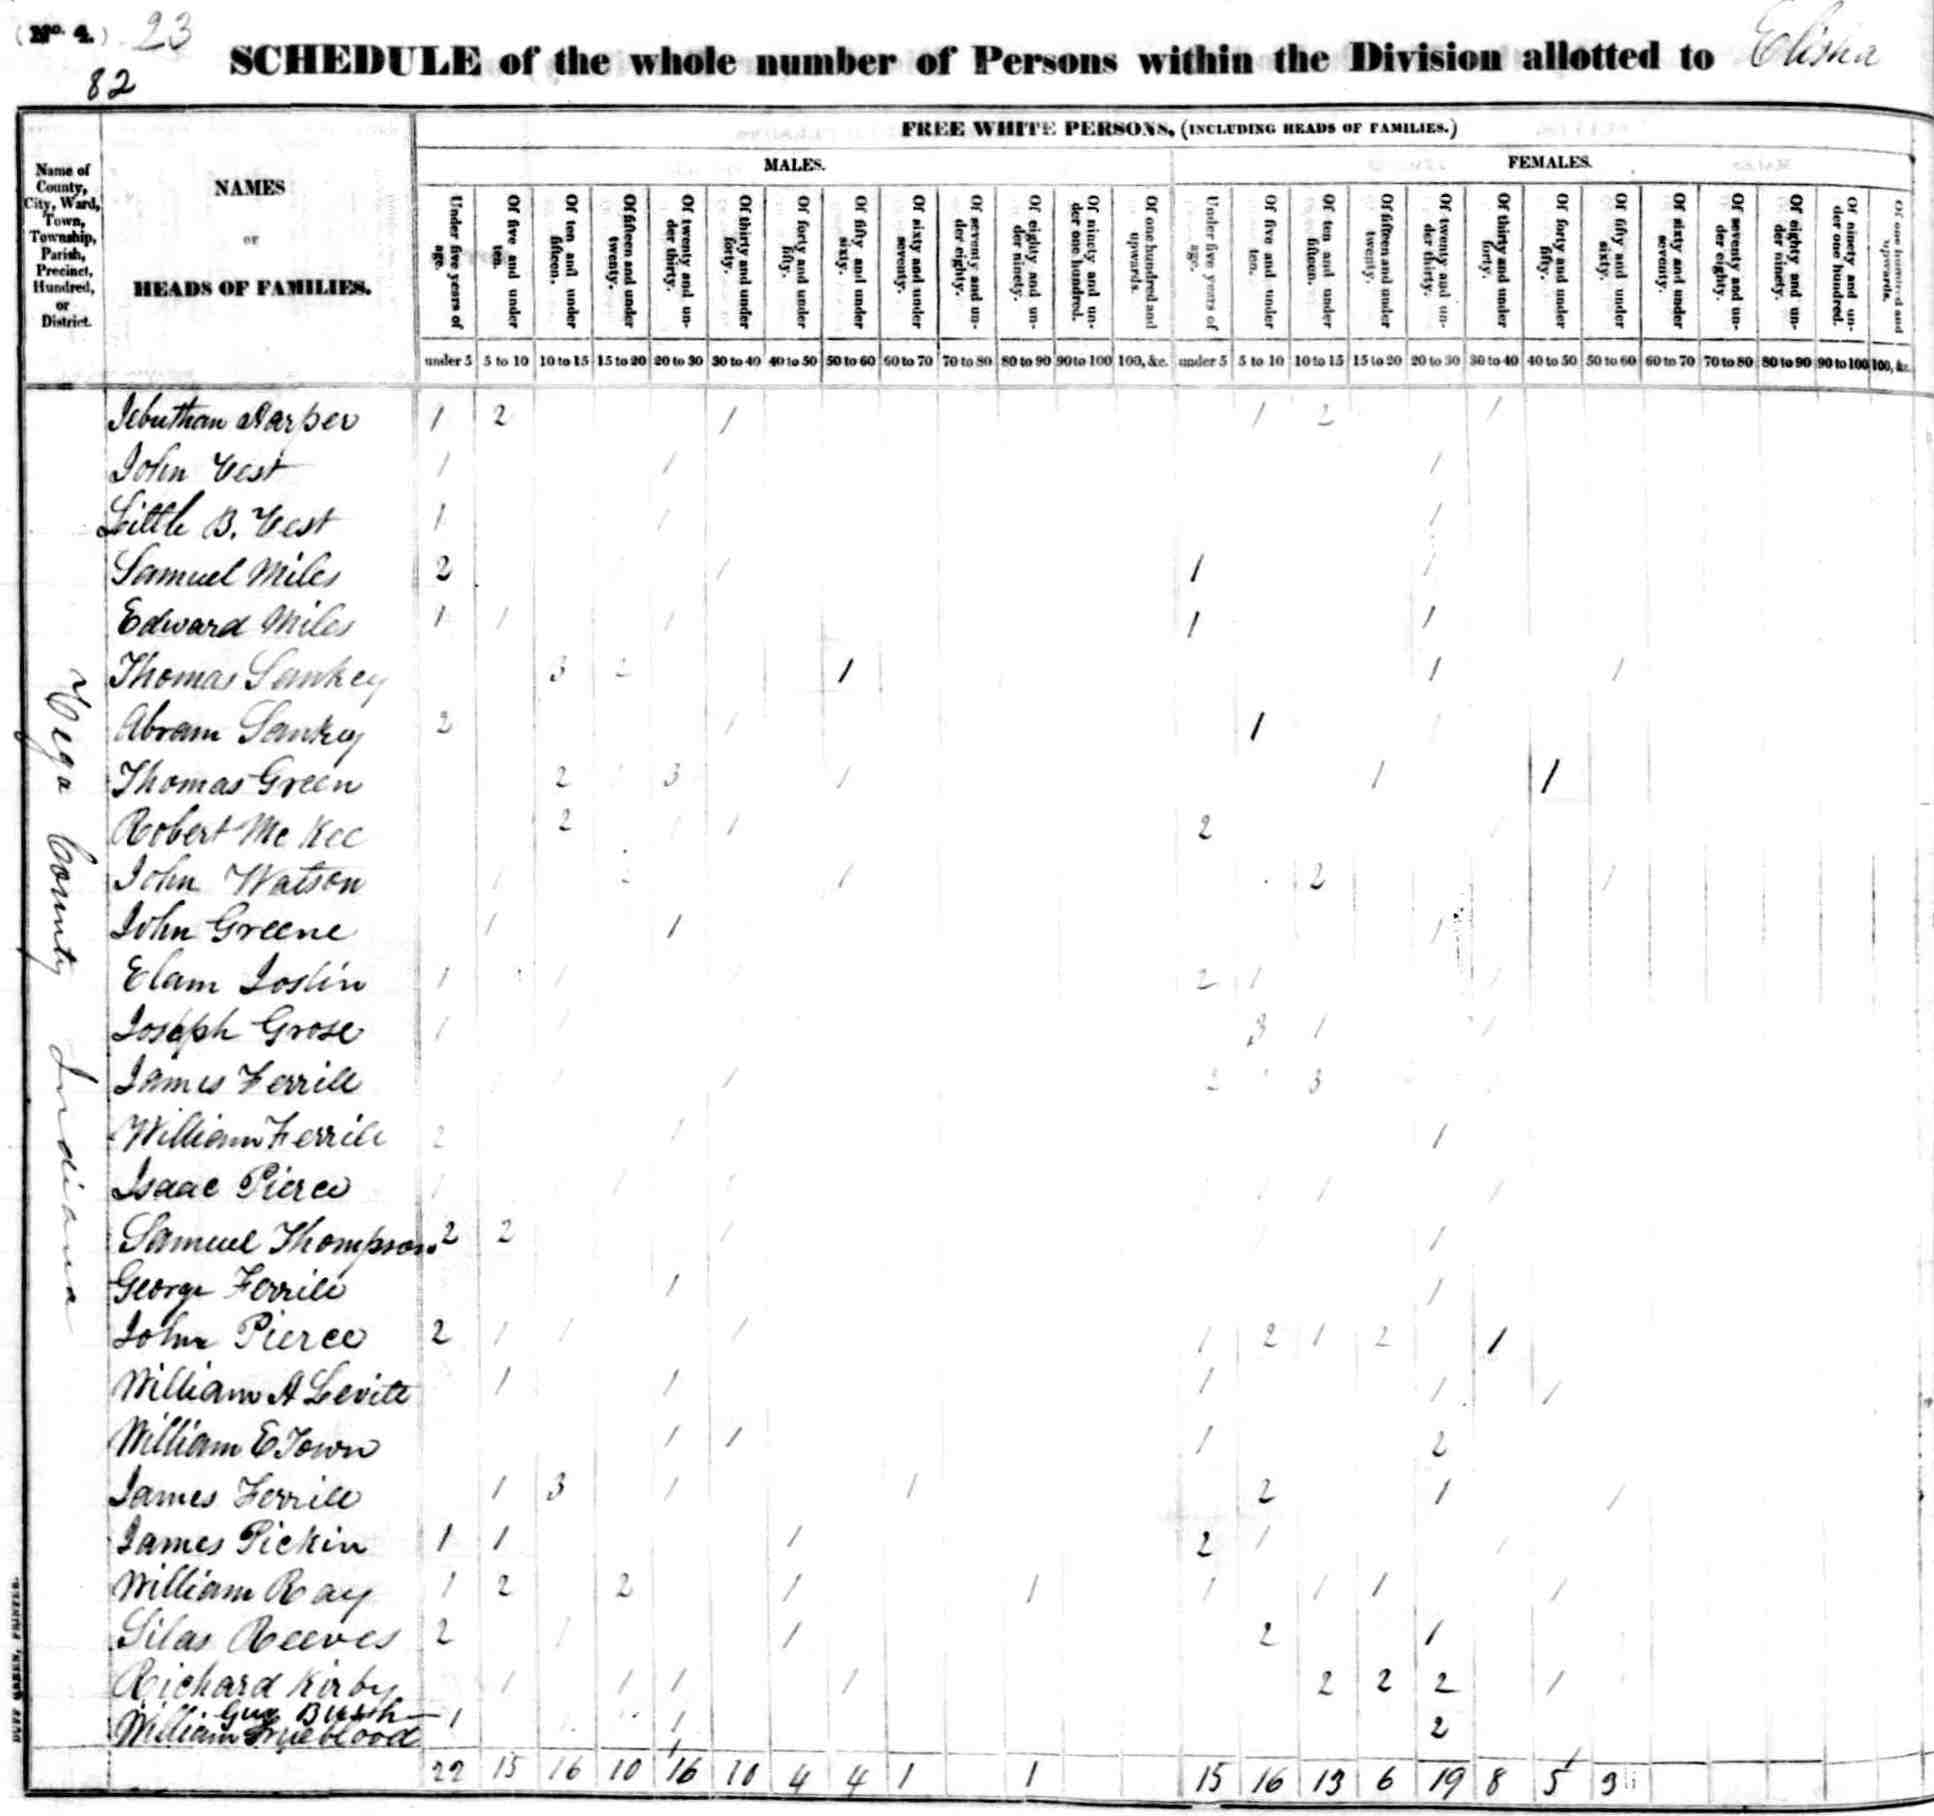 (No. 4.) 23
82
SCHEDULE of the whole number of Persons within the Division allotted to Elisha
FREE WHITE PERSONS, (INCLUDING HEADS OF FAMILIES.)
MALES. FEMALES.
Name of County, City, Ward, Town, Township, Parish, Precinct, Hundred, or District.
NAMES
OF
HEADS OF FAMILIES.
Under five years of age. Of five and under ten. Of ten and under fifteen. Of fifteen and under twenty. Of twenty and under thirty. Of thirty and under forty. Of forty and under fifty. Of fifty and under sixty. Of sixty and under seventy. Of seventy and under eighty. Of eighty and under ninety. Of ninety and under one hundred. Of one hundred and upwards. Under five years of age. Of five and under ten. Of ten and under fifteen. Of fifteen and under twenty. Of twenty and under thirty. Of thirty and under forty. Of forty and under fifty. Of fifty and under sixty. Of sixty and under seventy. Of seventy and under eighty. Of eighty and under ninety. Of ninety and under one hundred. Of one hundred and upwards.
under 5 5 to 10 10 to 15 15 to 20 20 to 30 30 to 40 40 to 50 50 to 60 60 to 70 70 to 80 80 to 90 90 to 100 100, &c. under 5 5 to 10 10 to 15 15 to 20 20 to 30 30 to 40 40 to 50 50 to 60 60 to 70 70 to 80 80 to 90 90 to 100 100, &c.
Vigo County Indiana
Harper 1 2 1 1 2 1
John Vest 1 1 1
Little B. Vest 1 1 1
Samuel Miles 2 1 1 1
Edward Miles 1 1 1 1 1
Thomas Sankey 3 2 1 1 1
Abram Sankey 2 1 1 1
Thomas Green 2 1 3 1 1 1
Robert McKee 2 1 1 2 1
John Watson 1 2 1 2 1
John Greene 1 1 1
Elam Joslin 1 1 1 2 1 1
Joseph Grose 1 1 3 1 1
James Ferrill 1 1 1 1 3
William Ferrill 2 1 1
Isaac Pierce 1 1 1 1 1 1
Samuel Thompson 2 2 1 1
George Ferrill 1 1
John Pierce 2 1 1 1 1 2 1 2 1
William A Levitt 1 1 1 1 1
William E Town 1 1 1 2
James Ferrill 1 3 1 1 2 1 1
James Pickin 1 1 1 2 1 1
William Ray 1 2 2 1 1 1 1 1 1
Silas Reeves 2 1 1 2 1
Richard Kirby 1 1 1 1 2 2 2 1
Guy Bush
William Trueblood 1 1 2
22 15 16 10 16 10 4 4 1 1 15 16 13 6 19 8 5 3
DUFF GREEN, PRINTER.